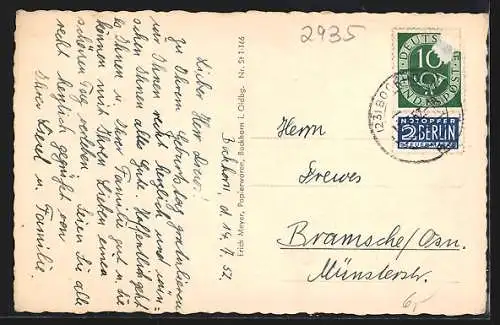 2935
Bockhorn, d. 14. 9. 52.
Lieber Herr Drewes!
Zu Ihrem Geburtstag gratulieren
wir Ihnen recht herzlich und wün-
schen Ihnen alles Gute. Hoffentlich geht
es Ihnen u. Ihrer Familie gut u. Sie
können mit Ihren Lieben einen
schönen Tag verleben. Seien Sie alle
recht herzlich gegrüßt von
Ihrer Liesel u. Familie.
Erich Meyer, Papierwaren, Bockhorn i. Oldbg. Nr. St 1/166
DEUTSCHE
10
BUNDESPOST
(23) BOC
NOTOPFER
2 BERLIN
STEUERMARKE
Herrn
Drewes
Bramsche/Osn.
Münsterstr.
6,-